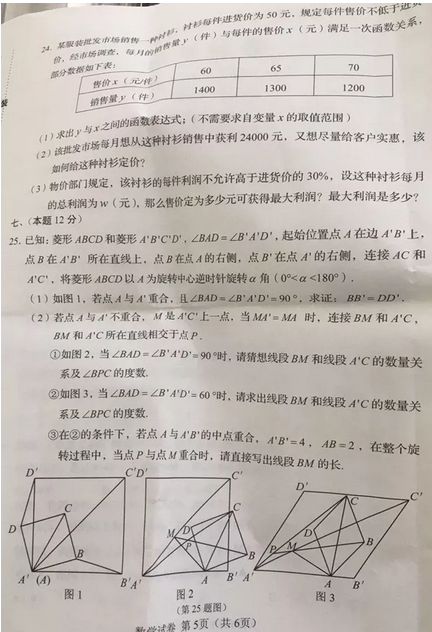 24. 某服装批发市场销售一种衬衫，衬衫每件进货价为 50 元，规定每件售价不低于进货
价，经市场调查，每月的销售量 y（件）与每件的售价 x（元）满足一次函数关系，
部分数据如下表：
售价 x（元/件） 60 65 70
销售量 y（件） 1400 1300 1200
（1）求出 y 与 x 之间的函数表达式；（不需要求自变量 x 的取值范围）
（2）该批发市场每月想从这种衬衫销售中获利 24000 元，又想尽量给客户实惠，该
如何给这种衬衫定价？
（3）物价部门规定，该衬衫的每件利润不允许高于进货价的 30%，设这种衬衫每月
的总利润为 w（元），那么售价定为多少元可获得最大利润？最大利润是多少？
七、（本题 12 分）
25. 已知：菱形 ABCD 和菱形 A'B'C'D'，∠BAD＝∠B'A'D'，起始位置点 A 在边 A'B' 上，
点 B 在 A'B' 所在直线上，点 B 在点 A 的右侧，点 B' 在点 A' 的右侧，连接 AC 和
A'C'，将菱形 ABCD 以 A 为旋转中心逆时针旋转 α 角（0°<α<180°）.
（1）如图 1，若点 A 与 A' 重合，且∠BAD＝∠B'A'D'＝90°，求证：BB'＝DD'.
（2）若点 A 与 A' 不重合，M 是 A'C' 上一点，当 MA'＝MA 时，连接 BM 和 A'C，
BM 和 A'C 所在直线相交于点 P.
①如图 2，当∠BAD＝∠B'A'D'＝90°时，请猜想线段 BM 和线段 A'C 的数量关
系及∠BPC 的度数.
②如图 3，当∠BAD＝∠B'A'D'＝60°时，请求出线段 BM 和线段 A'C 的数量关
系及∠BPC 的度数.
③在②的条件下，若点 A 与 A'B' 的中点重合，A'B'＝4，AB＝2，在整个旋
转过程中，当点 P 与点 M 重合时，请直接写出线段 BM 的长.
D' C' D' C' D' C C'
D C B A' (A) B'
M D P C B A' A B'
P M D B A' A B'
图 1 图 2 图 3
（第 25 题图）
数学试卷 第 5 页（共 6 页）